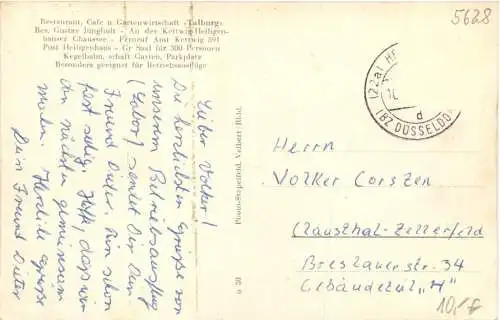 Restaurant, Cafe u Gartenwirtschaft "Talburg"
Bes. Gustav Jungbult - An der Kettwig-Heiligen-
hauser Chaussee - Fernruf Amt Kettwig 391
Post Heiligenhaus - Gr Saal für 300 Personen
Kegelbahn, schatt Garten, Parkplatz
Besonders geeignet für Betriebsausflüge
5628
(22a) HE
10
d
(BZ DÜSSELDOR
Lieber Volker!
Die herzlichsten Grüsse von
unserem Betriebsausflug
(Labor) sendet Dir Dein
Freund Dieter. Bin schon
fest selig. Hoffe, dass wir
den nächsten gemeinsam
machen. Herzliche Grüsse
Dein Freund Dieter
Velbert/Rhld.
o 30
Herrn
Volker Corszen
Clausthal-Zellerfeld
Breslauer str. 34
Gebäudeteil "H"
10,-